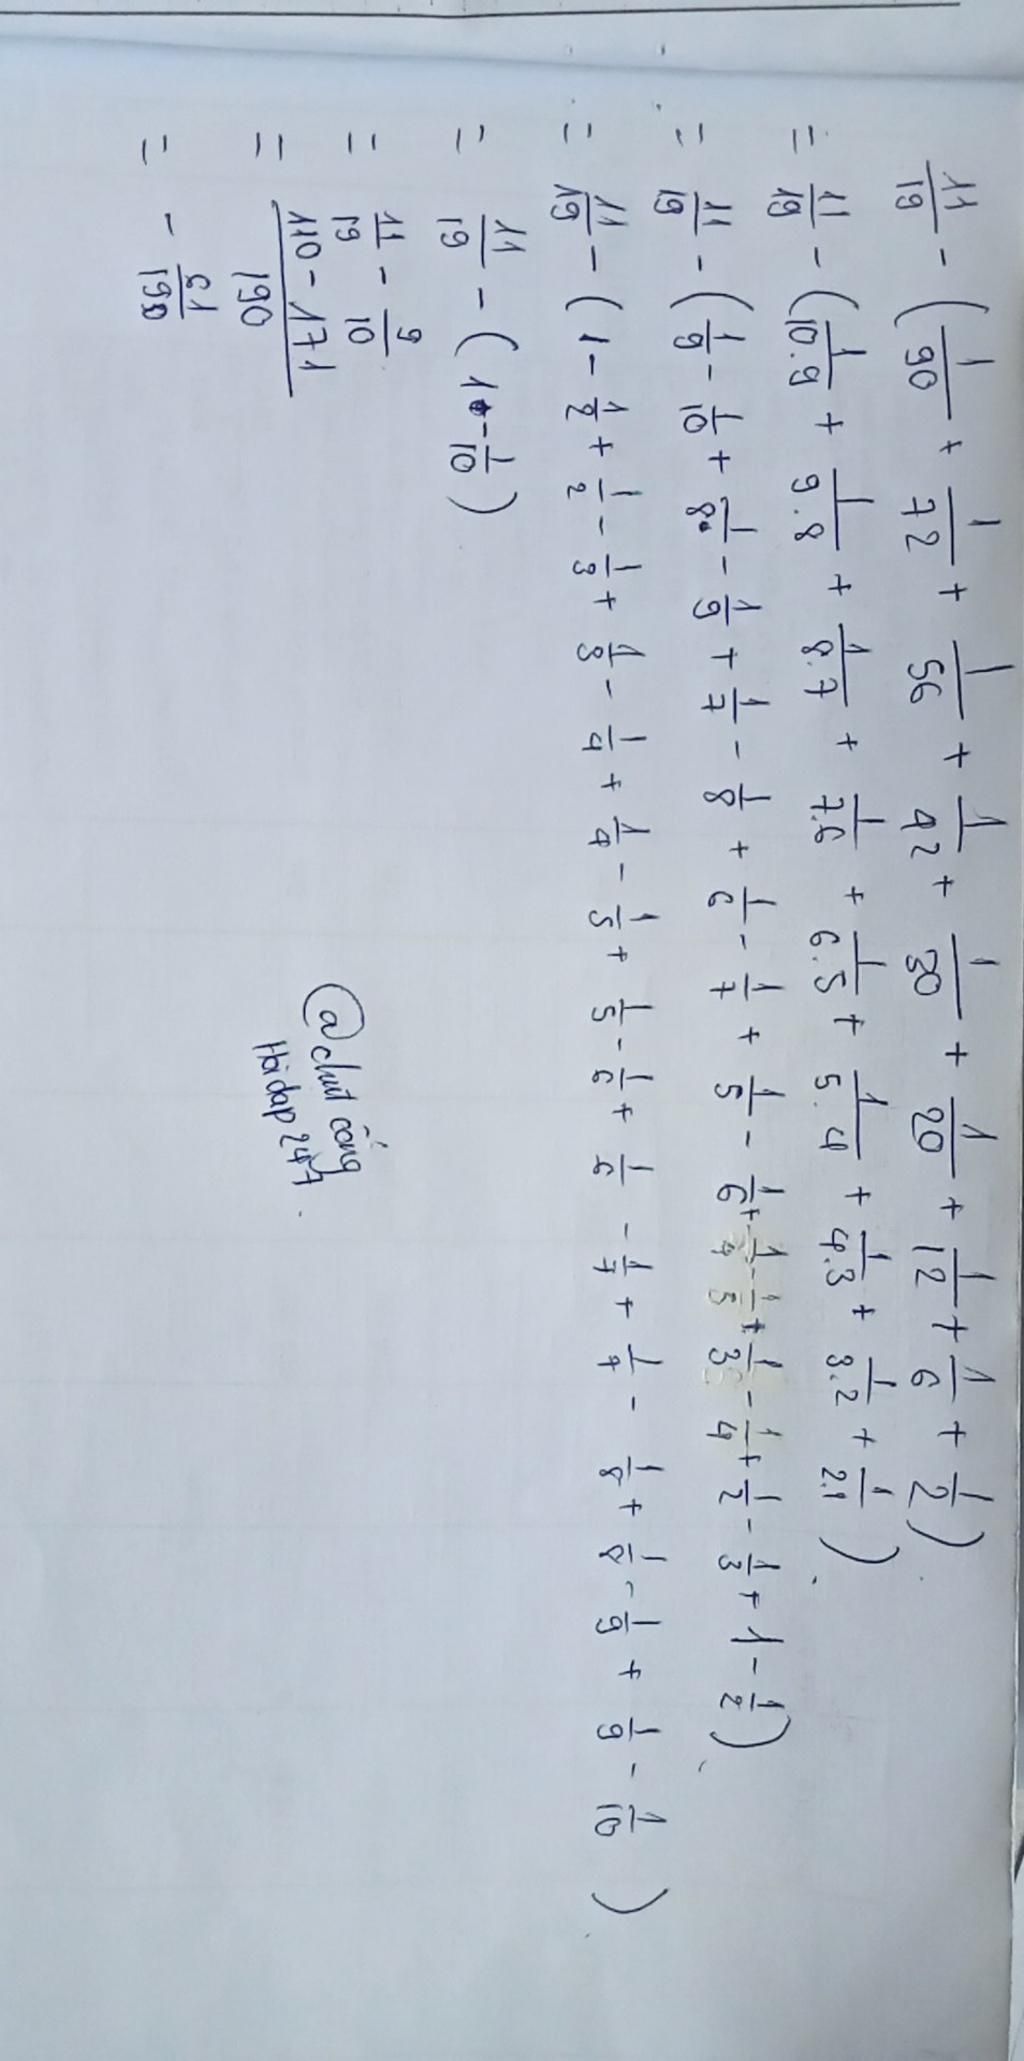 11/19 - (1/90 + 1/72 + 1/56 + 1/42 + 1/30 + 1/20 + 1/12 + 1/6 + 1/2)
= 11/19 - (1/10.9 + 1/9.8 + 1/8.7 + 1/7.6 + 1/6.5 + 1/5.4 + 1/4.3 + 1/3.2 + 1/2.1)
= 11/19 - (1/9 - 1/10 + 1/8 - 1/9 + 1/7 - 1/8 + 1/6 - 1/7 + 1/5 - 1/6 + 1/4 - 1/5 + 1/3 - 1/4 + 1/2 - 1/3 + 1 - 1/2)
= 11/19 - (1 - 1/2 + 1/2 - 1/3 + 1/3 - 1/4 + 1/4 - 1/5 + 1/5 - 1/6 + 1/6 - 1/7 + 1/7 - 1/8 + 1/8 - 1/9 + 1/9 - 1/10)
= 11/19 - (1 - 1/10)
= 11/19 - 9/10
= 110 - 171/190
= - 61/190
@chut cống
Hoidap247